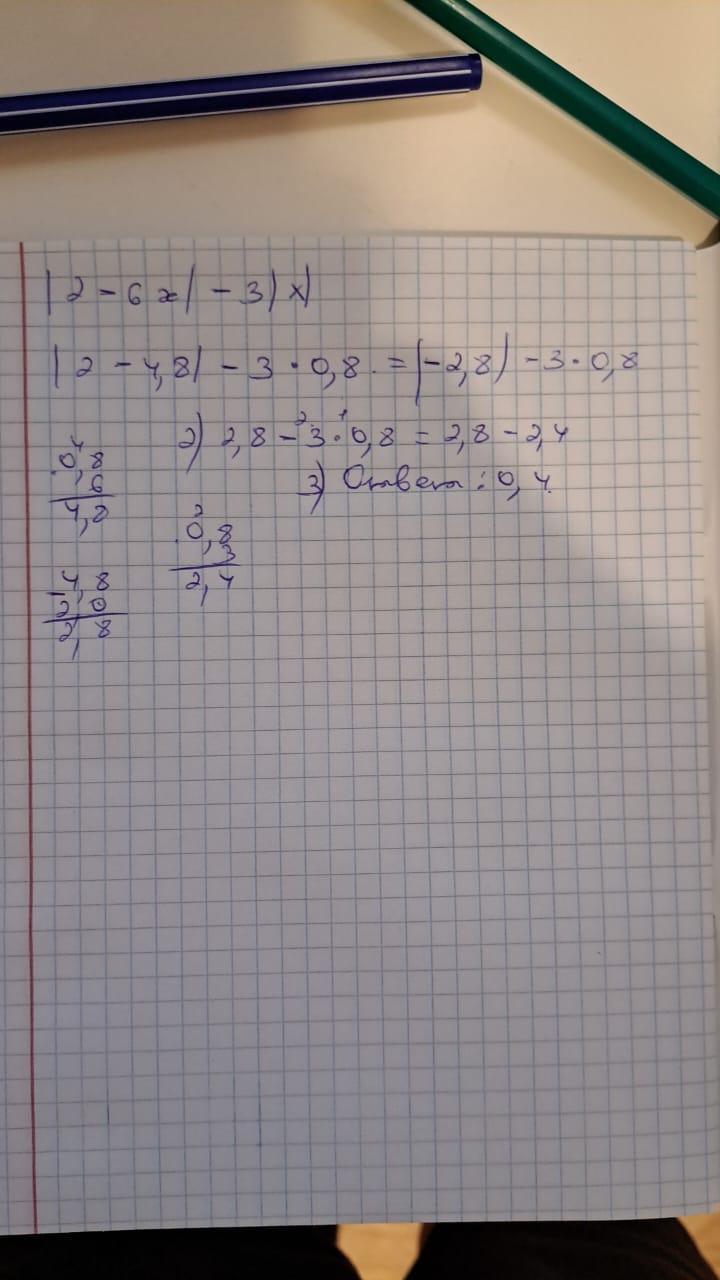 |2 - 6x| - 3|x|
|2 - 4,8| - 3 · 0,8 = |-2,8| - 3 · 0,8
2) 2,8 - 3 · 0,8 = 2,8 - 2,4
2 1
3) Ответ: 0,4
4
0,8
6
4,8
2
0,8
3
2,4
- 4,8
2,0
2,8